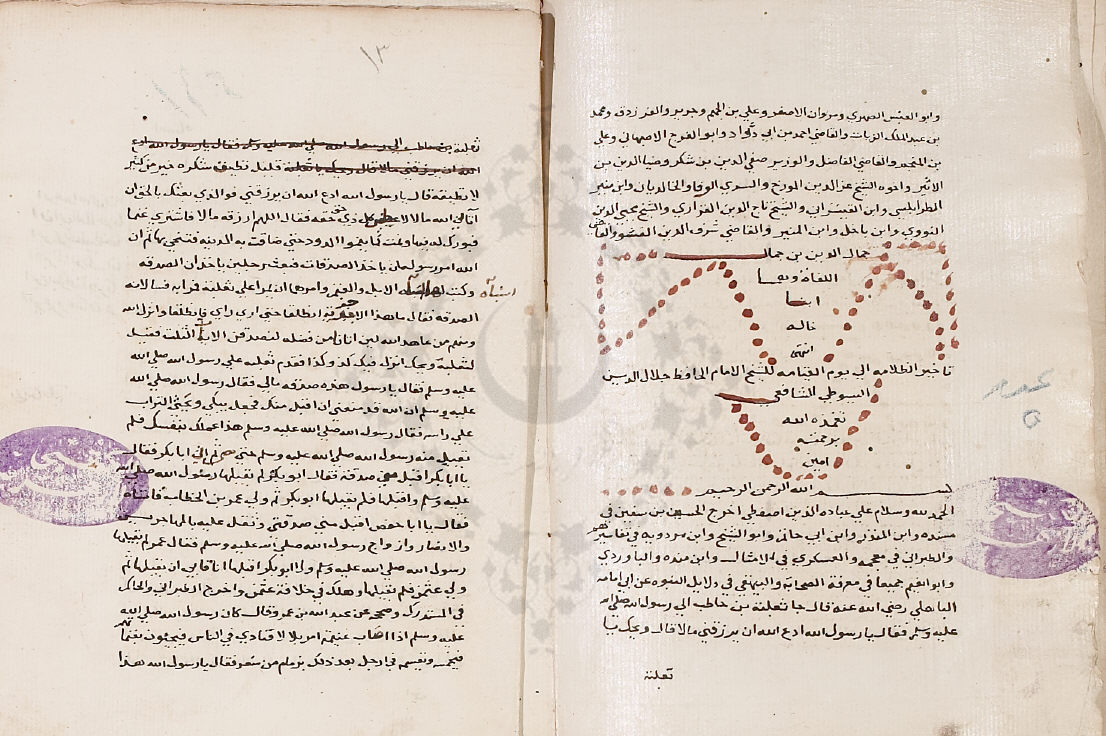 وابو العيس الصيمري ومروان الاصغر وعلي بن الجهم وجرير والفرزدق ومحمد
بن عبد الملك الزيات والقاضي احمد من ابي دؤاد وابو الفرج الاصبهاني وعلي
بن المنجم والقاضي الفاضل والوزير صفي الدين بن شكر وضيا الدين بن
الاثير واخوه الشيخ عز الدين المورخ والسري الرفا والخالديان وابن منير
الطرابلسي وابن القيسراني والشيخ تاج الدين الفزاري والشيخ محيي الدين
النووي وابن باخل وابن المنير والقاضي شرف الدين
جمال الدين بن جماله
ايضا
خاله
انتهى
تاخير الظلامه الى يوم القيامه للشيخ الامام الحافظ جلال الدين
السيوطي الشافعي
تغمده الله
برحمته
امين
بسم الله الرحمن الرحيم
الحمد لله وسلام علي عباده الذين اصطفي اخرج الحسين بن سفين في
مسنده وابن المنذر وابن ابي حاتم وابو الشيخ وابن مردويه في تفاسيرهم
والطبراني في معجمه والعسكري في الامثال وابن منده والباوردي
وابو نعيم جميعا في معرفة الصحابة والبيهقي في دلايل النبوه عن ابي امامة
الباهلي رضي الله عنه قال جا ثعلبة بن حاطب الي رسول الله صلي الله
عليه وسلم فقال يا رسول الله ادع الله ان يرزقني مالا قال ويحك يا
ثعلبة
١٣
ثعلبة بن حاطب الي رسول الله صلي الله عليه وسلم فقال يا رسول الله ادع
الله ان يرزقني مالا قال ويحك يا ثعلبة قليل تطيق شكره خير من كثير
لا تطيقه قال يا رسول الله ادع الله ان يرزقني فو الذي بعثك بالحق ان
اتاني الله مالا لاعطين كل ذي حق حقه فقال اللهم ارزقه مالا فاشتري غنما
فبورك له فيها ونمت كما ينمو الدود حتي ضاقت به المدينه فتنحي بها ثم ان
الله امر رسوله ان ياخذ الصدقات فبعث رجلين ياخذان الصدقه
وكتب لهما اسنان الابل والغنم وامرهما ان يمرا علي ثعلبة فمرا به فسالاه
الصدقه فقال ما هذا الا جزيه انطلقا حتي اري رايي فانطلقا وانزل الله
ومنهم من عاهد الله لين اتانا من فضله لنصدقن الايات الثلث فقيل
لثعلبة ويحك انزل فيك كذا وكذا فقدم ثعلبه علي رسول الله صلي الله
عليه وسلم فقال يا رسول الله هذه صدقه مالي فقال رسول الله صلي الله
عليه وسلم ان الله قد منعني ان اقبل منك فجعل يبكي ويحثي التراب
علي راسه فقال رسول الله صلي الله عليه وسلم هذا عملك بنفسك فلم
تقبل منه رسول الله صلي الله عليه وسلم حتي ثم اتي ابا بكر فقال
يا ابا بكر اقبل مني صدقته فقال ابو بكر لم يقبلها رسول الله صلي الله
عليه وسلم واقبلها فلم يقبلها ابو بكر ثم ولي عمر بن الخطاب فاتاه
فقال يا ابا حفص اقبل مني صدقتي وثقل عليه بالمهاجرين
والانصار وازواج رسول الله صلي الله عليه وسلم فقال عمر لم يقبلها
رسول الله صلي الله عليه وسلم ولا ابو بكر اقبلها انا فابي ان يقبلها ثم
ولي عثمن فلم يقبلها وهلك في خلافة عثمن واخرج الطبراني والحاكم
في المستدرك وصححه عن عبد الله بن عمرو قال كان رسول الله صلي الله
عليه وسلم اذا اصاب غنيمة امر بلالا فنادي في الناس فيجيئون بغنايمهم
فيخمسه ويقسمه فجا رجل بعد ذلك بزمام من شعر فقال يا رسول الله هذا
اسنان